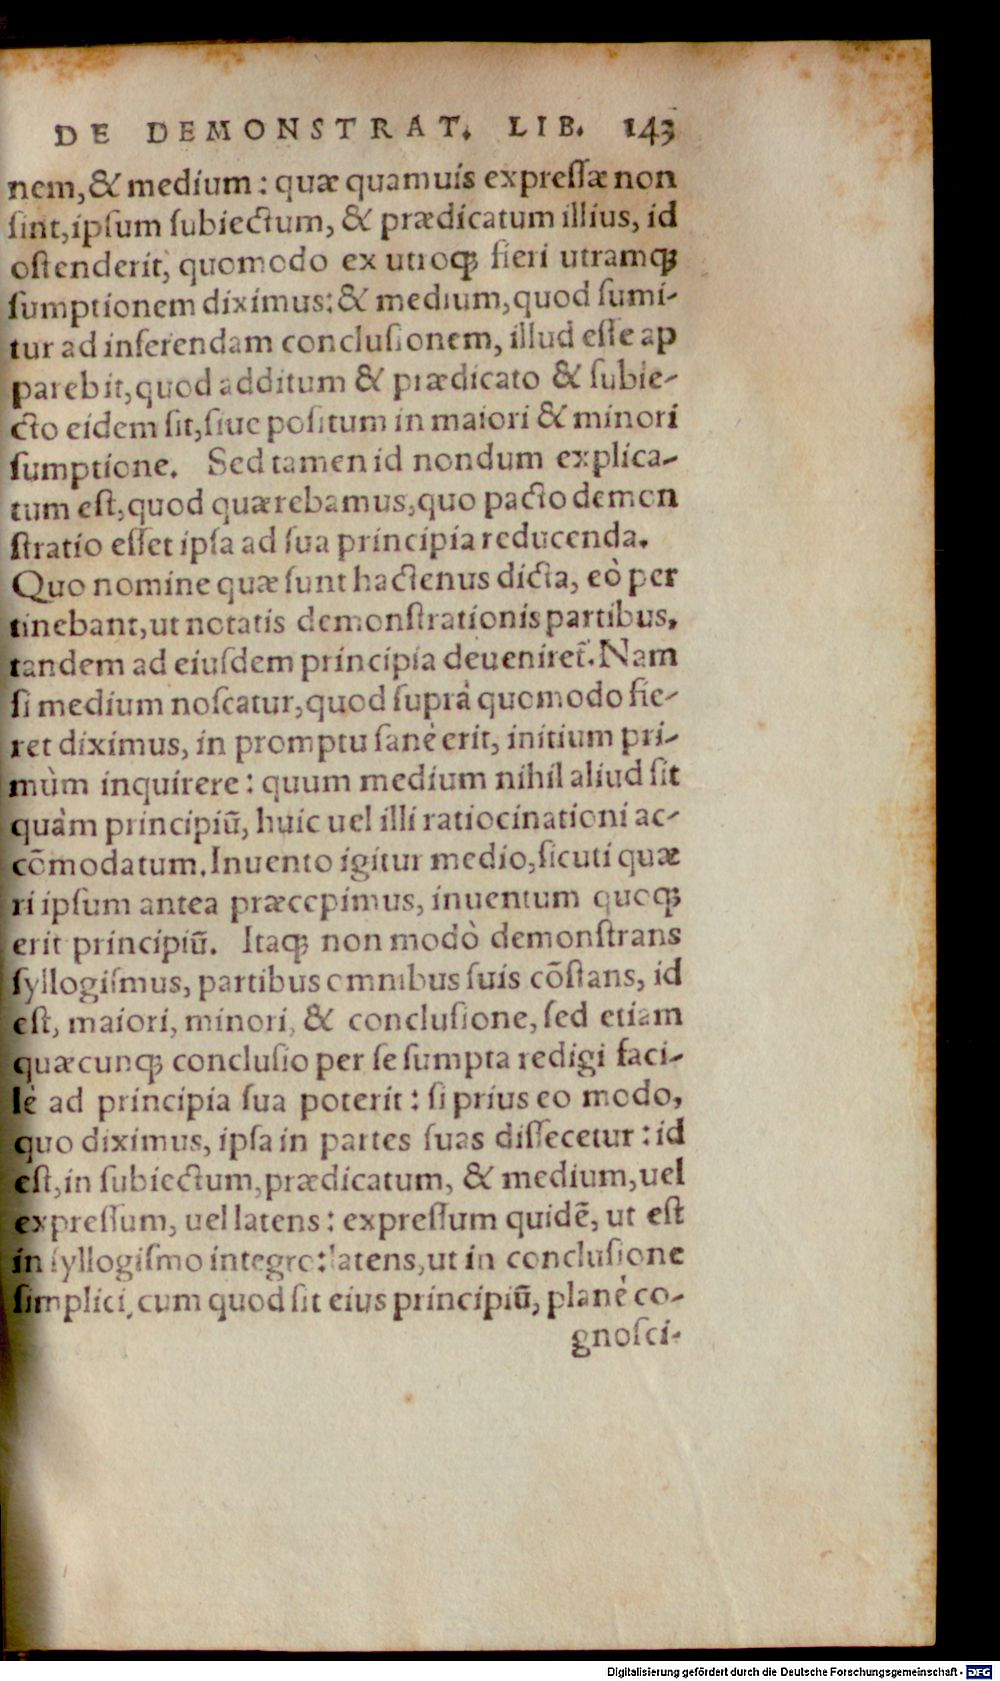 DE DEMONSTRAT. LIB. 143
nem, & medium : quæ quamuis expreſſæ non
ſint, ipſum ſubiectum, & prædicatum illius, id
oſtenderit, quomodo ex utroq; fieri utramq;
ſumptionem diximus: & medium, quod ſumi-
tur ad inferendam concluſionem, illud eſſe ap
parebit, quod additum & prædicato & ſubie-
cto eidem ſit, ſiue poſitum in maiori & minori
ſumptione. Sed tamen id nondum explica-
tum eſt, quod quærebamus, quo pacto demon
ſtratio eſſet ipſa ad ſua principia reducenda.
Quo nomine quæ ſunt hactenus dicta, eò per
tinebant, ut notatis demonſtrationis partibus,
tandem ad eiuſdem principia deueniret̃. Nam
ſi medium noſcatur, quod ſuprà quomodo fie-
ret diximus, in promptu ſanè erit, initium pri-
mùm inquirere : quum medium nihil aliud ſit
quàm principiũ, huic uel illi ratiocinationi ac-
cõmodatum. Inuento igitur medio, ſicuti quæ
ri ipſum antea præcepimus, inuentum quoq;
erit principiũ. Itaq; non modò demonſtrans
ſyllogiſmus, partibus omnibus ſuis cõſtans, id
eſt, maiori, minori, & concluſione, ſed etiam
quæcunq; concluſio per ſe ſumpta redigi faci-
lè ad principia ſua poterit : ſi prius eo modo,
quo diximus, ipſa in partes ſuas diſſecetur : id
eſt, in ſubiectum, prædicatum, & medium, uel
expreſſum, uel latens : expreſſum quidẽ, ut eſt
in ſyllogiſmo integro: latens, ut in concluſione
ſimplici, cum quod ſit eius principiũ, planè co-
gnoſci-
Digitalisierung gefördert durch die Deutsche Forschungsgemeinschaft - DFG